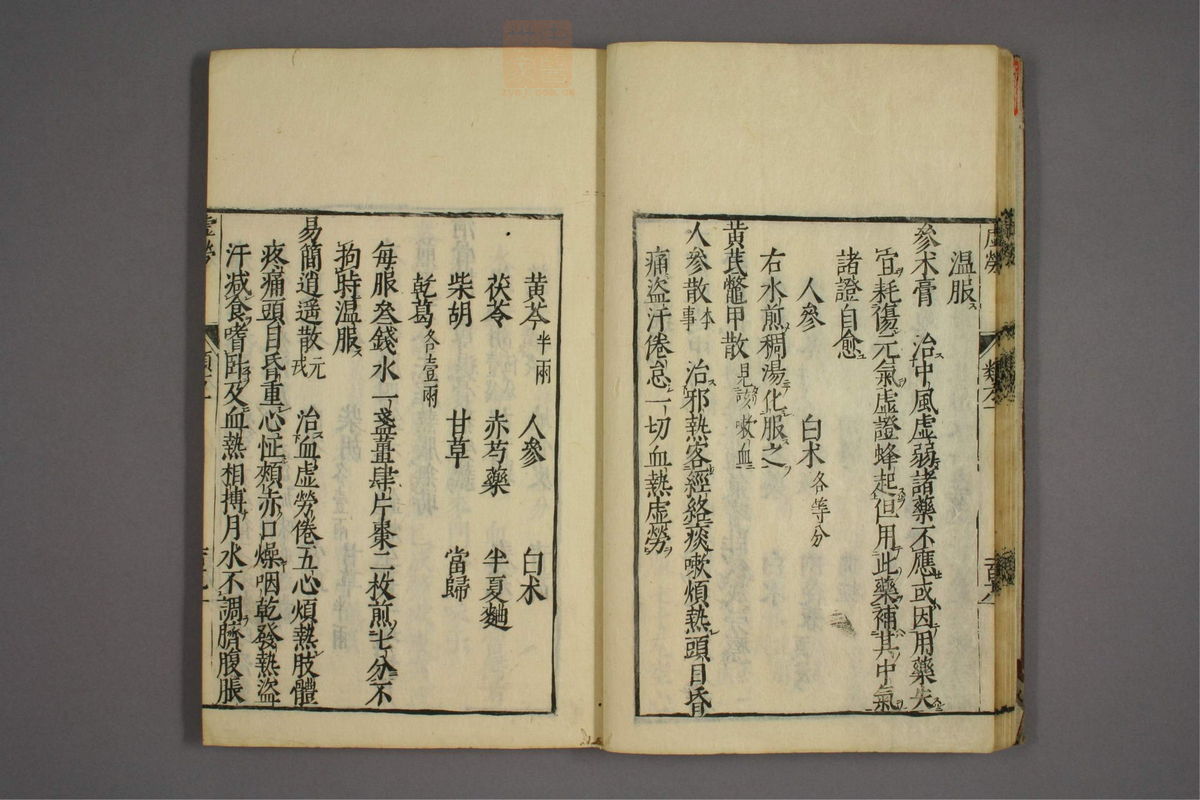 虛勞
温服
參术膏　治中風虛弱諸藥不應或因用藥失
宜耗傷元氣虛證蜂起但用此藥補其中氣
諸證自愈
人參　白术各等分
右水煎稠湯化服之
黃芪鼈甲散見該嗽血
人參散本事　治邪熱客經絡痰嗽煩熱頭目昏
痛盜汗倦怠一切血熱虛勞
黃芩半兩　人參　白术
茯苓　赤芍藥　半夏麯
柴胡　甘草　當歸
乾葛各壹兩
每服叄錢水一盞薑肆片棗二枚煎七分不
拘時温服
易簡逍遥散元戎　治血虛勞倦五心煩熱肢體
疼痛頭目昏重心怔頰赤口燥咽乾發熱盜
汗减食嗜卧及血熱相搏月水不調臍腹脹
虛勞